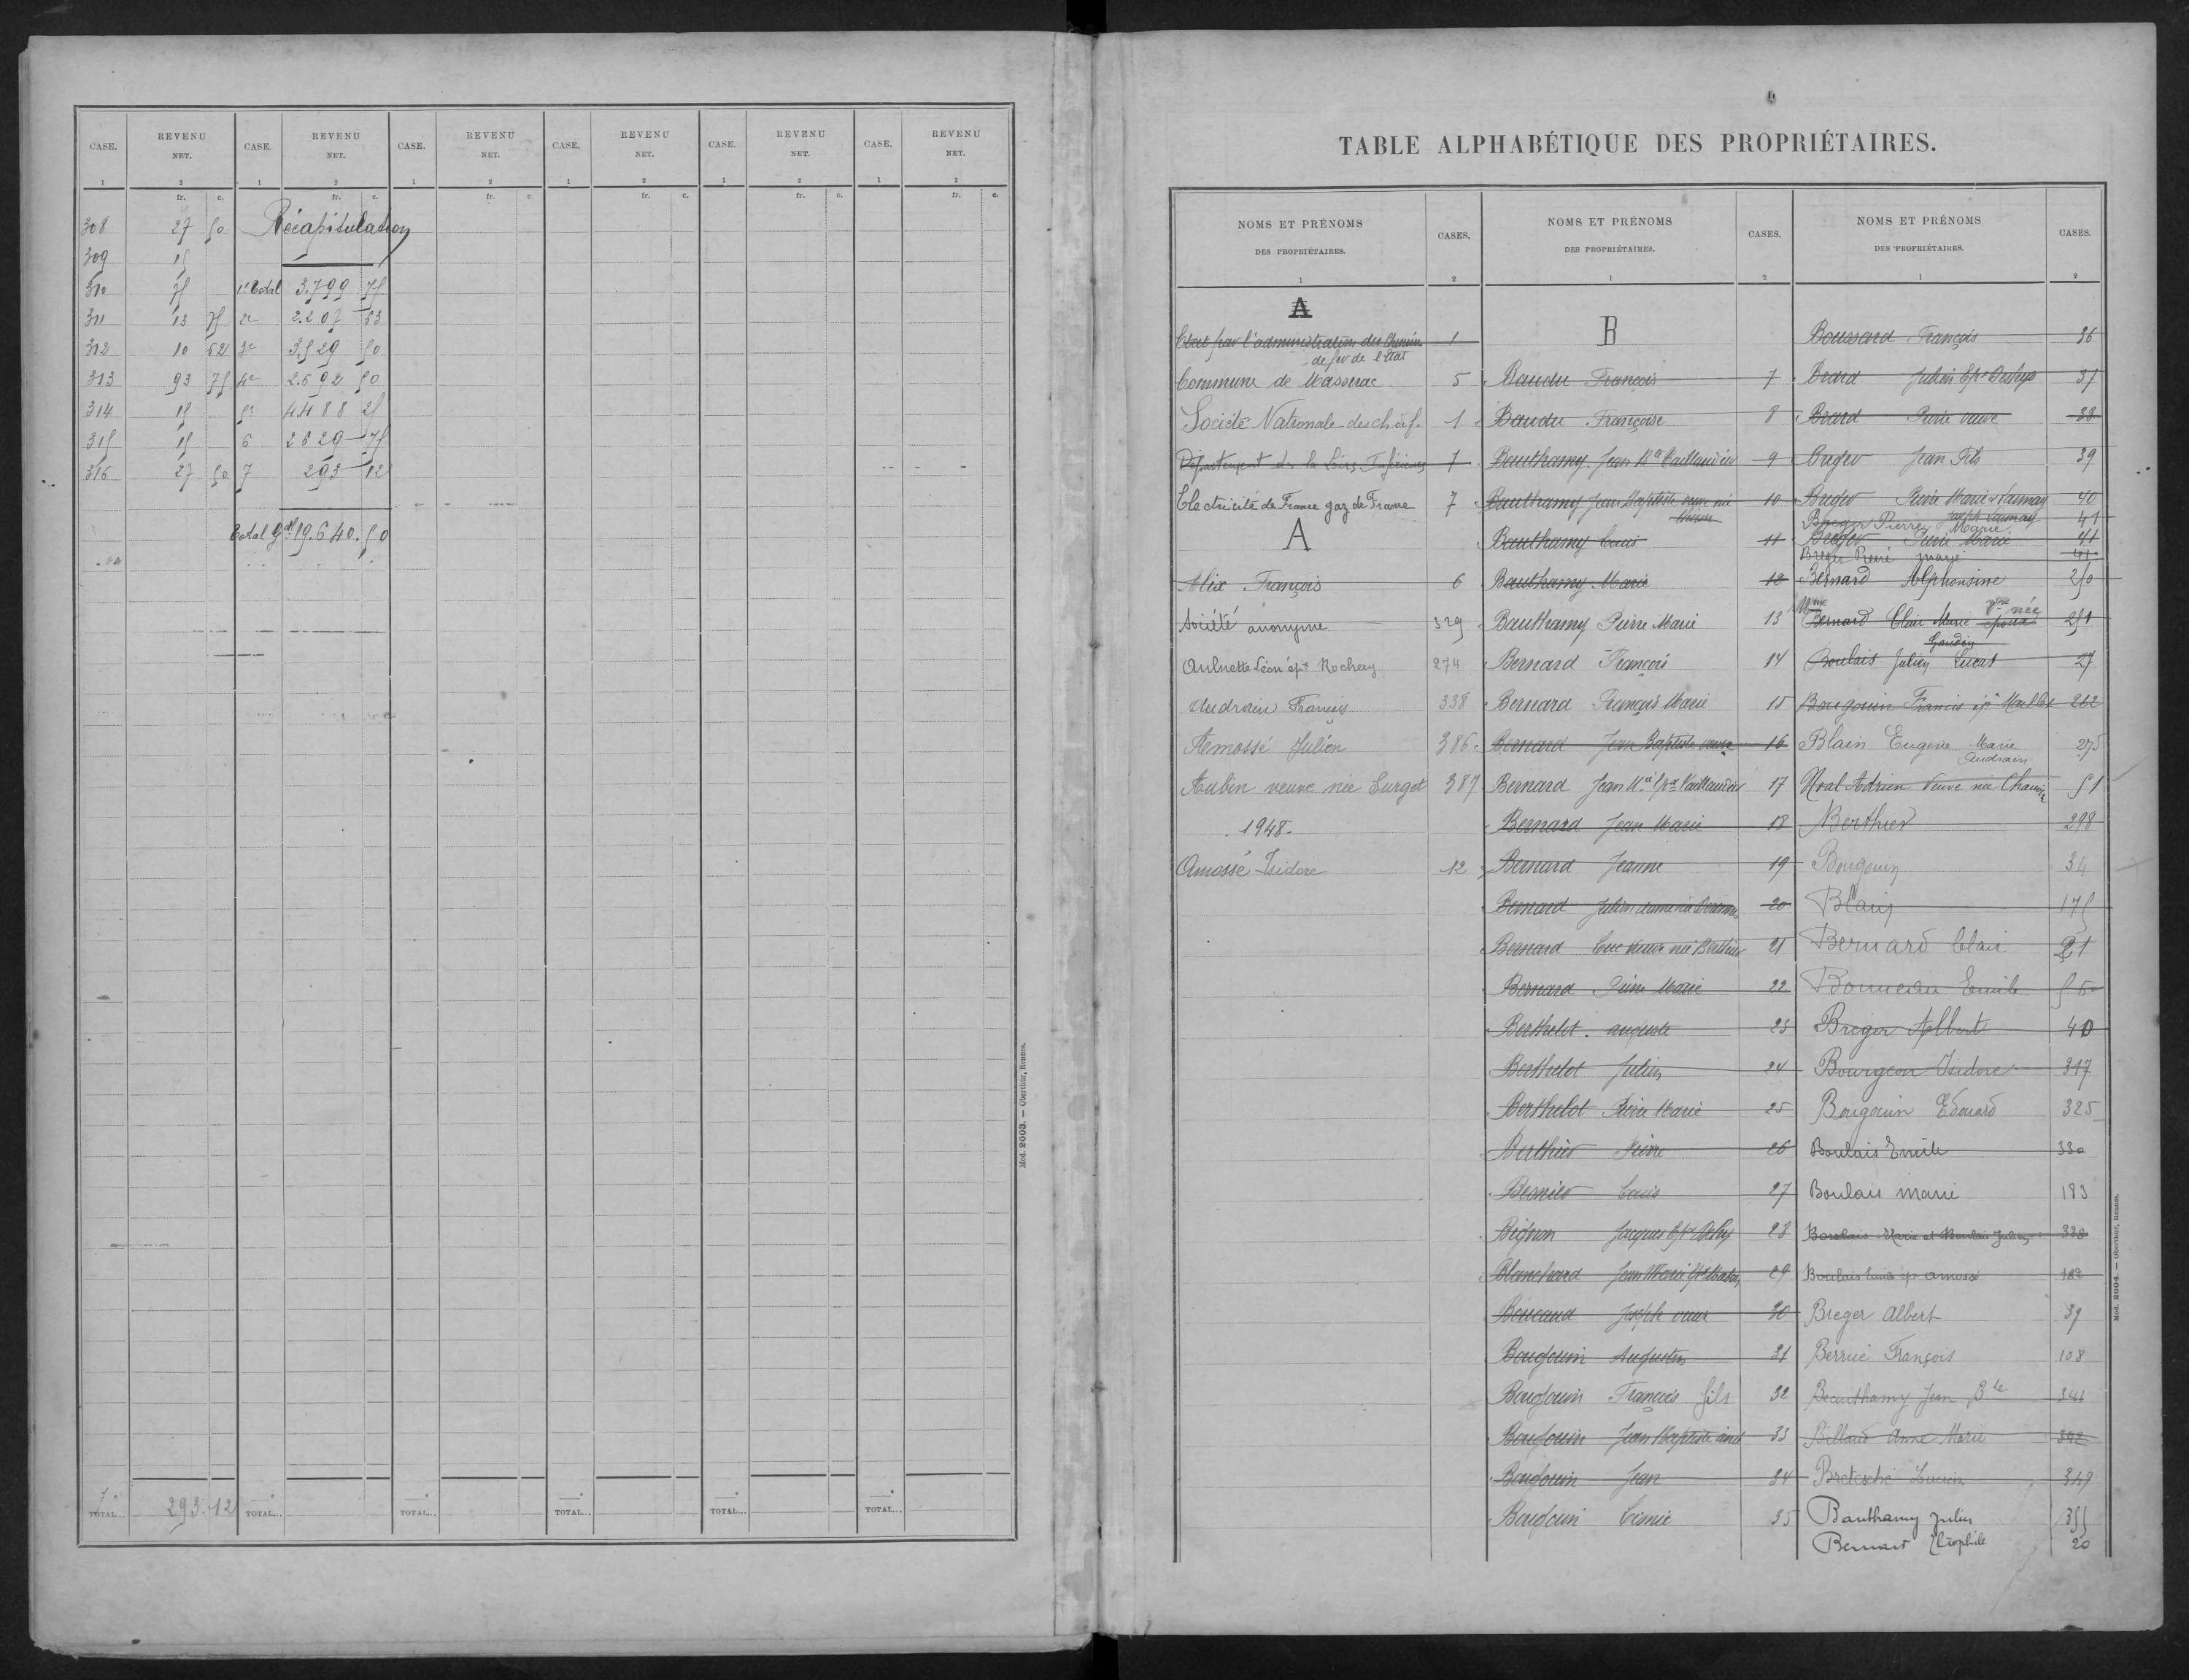 CASE. REVENU NET. CASE. REVENU NET. CASE. REVENU NET. CASE. REVENU NET. CASE. REVENU NET. CASE. REVENU NET.
1 2 1 2 1 2 1 2 1 2 1 2
fr. c. fr. c. fr. c. fr. c. fr. c. fr. c.
308 27 50 Récapitulation
309 15
310 75 1er Total 3.799 75
311 13 75 2e 2.207 63
312 10 62 3e 3.529 50
313 93 75 4e 2.692 50
314 15 5e 4488 25
315 15 6 2629 75
316 27 50 7 293 12
Total Gal 19.640.50
7e TOTAL... 293.12 TOTAL... TOTAL... TOTAL... TOTAL... TOTAL...
Mod. 2003. — Oberthur, Rennes.
TABLE ALPHABÉTIQUE DES PROPRIÉTAIRES.
NOMS ET PRÉNOMS DES PROPRIÉTAIRES. CASES.
1 2
A
Etat par l'administration des Chemins 1
de fer de l'Etat
Commune de Masserac 5
Société Nationale des ch. de f. 1
Département de la Loire Inférieure 7
Electricité de France gaz de France 7
A
Alix François 6
Société anonyme 329
Aulnette Léon épx Rochery 274
Audrain François 338
Amossé Julien 386
Aubin veuve née Surget 387
1948.
Amossé Isidore 12
NOMS ET PRÉNOMS DES PROPRIÉTAIRES. CASES.
1 2
B
Baudu François 7
Baudu Françoise 8
Bauthamy Jean Bte Caillaudier 9
Bauthamy Jean Baptiste veuve née 10
Bauthamy Louis 11
Bauthamy Marie 12
Bauthamy Pierre Marie 13
Bernard François 14
Bernard François Marie 15
Bernard Jean Baptiste veuve 16
Bernard Jean Mie épx Caillaudier 17
Bernard Jean Marie 18
Bernard Jeanne 19
Bernard Julien 20
Bernard Luc veuve née Berthier 21
Bernard Pierre Marie 22
Berthelot auguste 23
Berthelot Julien 24
Berthelot Pierre Marie 25
Berthier Pierre 26
Besnier Louis 27
Bignon Jacques épx 28
Blanchard Jean Marie 29
Joseph veuve 30
Bougouin Augustin 31
Bougouin François fils 32
Bougouin Jean Baptiste ainé 33
Bougouin Jean 34
Bougouin 35
NOMS ET PRÉNOMS DES PROPRIÉTAIRES. CASES.
1 2
Boussard François 36
Julien Epx 37
Pierre veuve 38
Breger Jean Fils 39
Breger Pierre Marie Launay 40
Breger Pierre Marie 41
Joseph Launay
Breger Pierre Marie 41
Breger Pierre marie 41
Bernard Alphonsine 250
Mme Bernard Clair Marie épouse vve née 251
Gaudin
Boulais Julien Lucas 27
Bougouin Francis épx 262
Blain Eugène Marie 275
Audrain
Adrien Veuve née 51
Berthier 298
Bougouin 34
Blain 175
Bernard Clair 21
Bonneau Emile
Breger Albert 40
Bourgeon Isidore 317
Bougouin Edouard 325
Boulais Emile 330
Boulais marie 183
Boulais Marie et Boulais Julien 330
Boulais épx amossé 182
Breger Albert 39
Berrué François 108
Beauthamy Jean Bte 341
Billaud Anne Marie 342
Bretesché Lucien 349
Bauthamy Julien 355
Bernard Théophile 20
Mod. 2004. — Oberthur, Rennes.